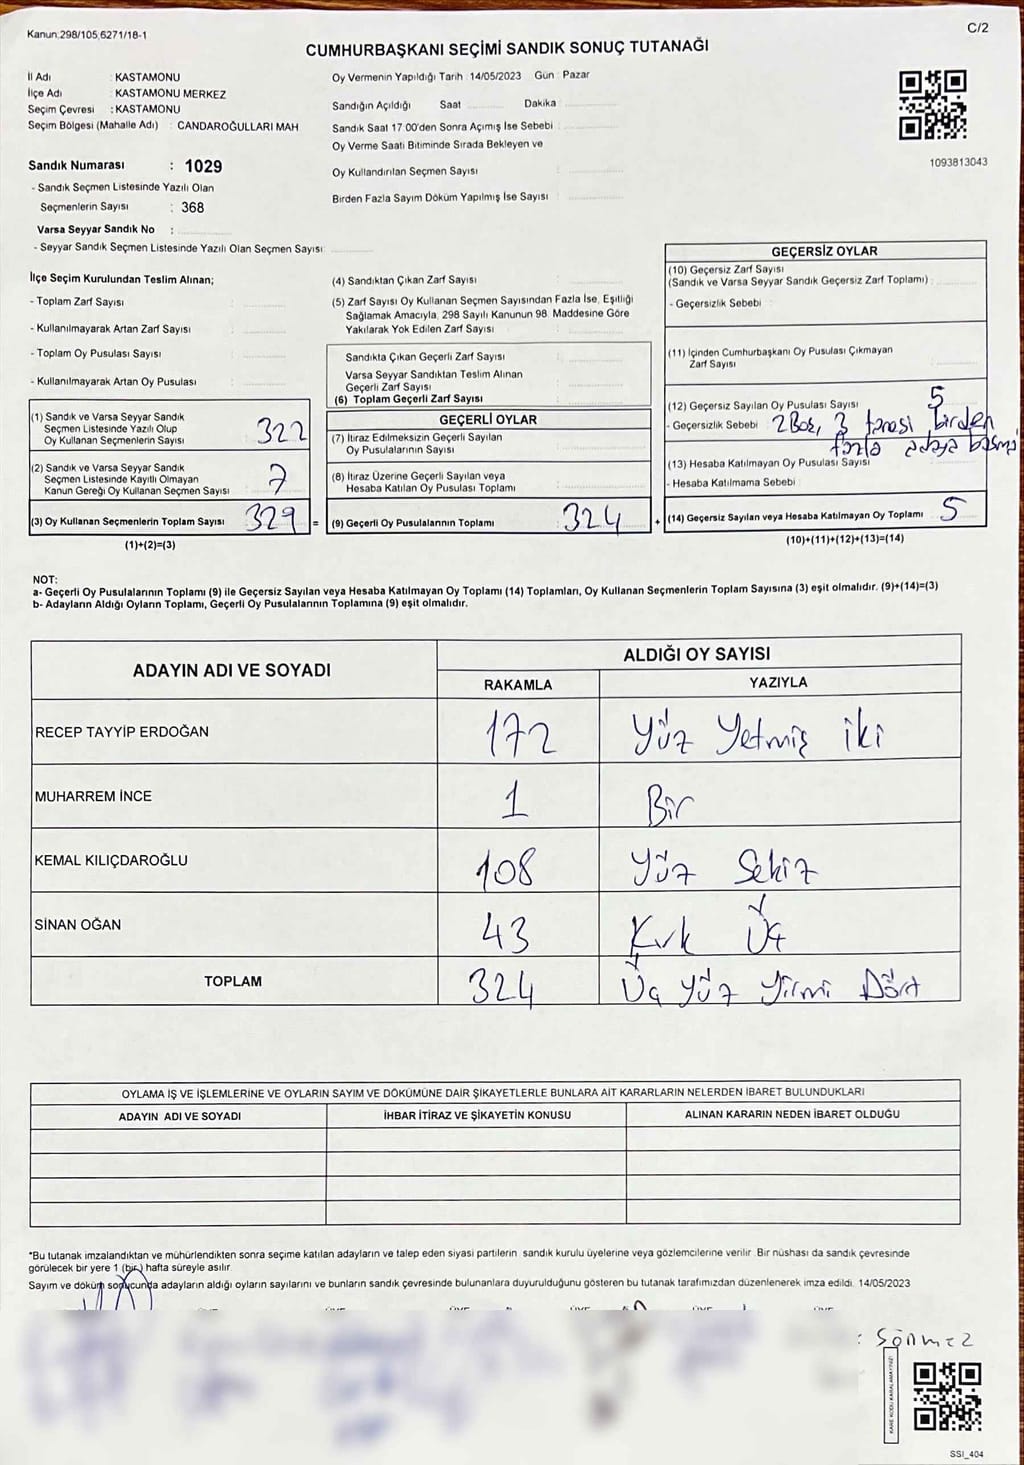 Kanun:298/105,6271/18-1
C/2
CUMHURBAŞKANI SEÇİMİ SANDIK SONUÇ TUTANAĞI
İl Adı : KASTAMONU
İlçe Adı : KASTAMONU MERKEZ
Seçim Çevresi : KASTAMONU
Seçim Bölgesi (Mahalle Adı) : CANDAROĞULLARI MAH
Oy Vermenin Yapıldığı Tarih :14/05/2023 Gün : Pazar
Sandığın Açıldığı Saat Dakika
Sandık Saat 17:00'den Sonra Açımış İse Sebebi :
Oy Verme Saati Bitiminde Sırada Bekleyen ve
Oy Kullandırılan Seçmen Sayısı :
Birden Fazla Sayım Döküm Yapılmış İse Sayısı :
1093813043
Sandık Numarası : 1029
- Sandık Seçmen Listesinde Yazılı Olan
Seçmenlerin Sayısı : 368
Varsa Seyyar Sandık No :
- Seyyar Sandık Seçmen Listesinde Yazılı Olan Seçmen Sayısı:
İlçe Seçim Kurulundan Teslim Alınan;
- Toplam Zarf Sayısı :
- Kullanılmayarak Artan Zarf Sayısı :
- Toplam Oy Pusulası Sayısı :
- Kullanılmayarak Artan Oy Pusulası :
(1) Sandık ve Varsa Seyyar Sandık
Seçmen Listesinde Yazılı Olup
Oy Kullanan Seçmenlerin Sayısı 322
(2) Sandık ve Varsa Seyyar Sandık
Seçmen Listesinde Kayıtlı Olmayan
Kanun Gereği Oy Kullanan Seçmen Sayısı 7
(3) Oy Kullanan Seçmenlerin Toplam Sayısı 329 =
(1)+(2)=(3)
(4) Sandıktan Çıkan Zarf Sayısı :
(5) Zarf Sayısı Oy Kullanan Seçmen Sayısından Fazla İse, Eşitliği
Sağlamak Amacıyla, 298 Sayılı Kanunun 98. Maddesine Göre
Yakılarak Yok Edilen Zarf Sayısı :
Sandıkta Çıkan Geçerli Zarf Sayısı :
Varsa Seyyar Sandıktan Teslim Alınan
Geçerli Zarf Sayısı :
(6) Toplam Geçerli Zarf Sayısı :
GEÇERLİ OYLAR
(7) İtiraz Edilmeksizin Geçerli Sayılan
Oy Pusulalarının Sayısı :
(8) İtiraz Üzerine Geçerli Sayılan veya
Hesaba Katılan Oy Pusulası Toplamı :
(9) Geçerli Oy Pusulalarının Toplamı : 324 +
GEÇERSİZ OYLAR
(10) Geçersiz Zarf Sayısı
(Sandık ve Varsa Seyyar Sandık Geçersiz Zarf Toplamı) :
- Geçersizlik Sebebi :
(11) İçinden Cumhurbaşkanı Oy Pusulası Çıkmayan
Zarf Sayısı :
(12) Geçersiz Sayılan Oy Pusulası Sayısı : 5
- Geçersizlik Sebebi : 2 Boş, 3 tanesi birden
fazla adaya basmış
(13) Hesaba Katılmayan Oy Pusulası Sayısı :
- Hesaba Katılmama Sebebi :
(14) Geçersiz Sayılan veya Hesaba Katılmayan Oy Toplamı : 5
(10)+(11)+(12)+(13)=(14)
NOT:
a- Geçerli Oy Pusulalarının Toplamı (9) ile Geçersiz Sayılan veya Hesaba Katılmayan Oy Toplamı (14) Toplamları, Oy Kullanan Seçmenlerin Toplam Sayısına (3) eşit olmalıdır. (9)+(14)=(3)
b- Adayların Aldığı Oyların Toplamı, Geçerli Oy Pusulalarının Toplamına (9) eşit olmalıdır.
ADAYIN ADI VE SOYADI
ALDIĞI OY SAYISI
RAKAMLA YAZIYLA
RECEP TAYYİP ERDOĞAN 172 Yüz Yetmiş iki
MUHARREM İNCE 1 Bir
KEMAL KILIÇDAROĞLU 108 Yüz Sekiz
SİNAN OĞAN 43 Kırk Üç
TOPLAM 324 Üç yüz yirmi Dört
OYLAMA İŞ VE İŞLEMLERİNE VE OYLARIN SAYIM VE DÖKÜMÜNE DAİR ŞİKAYETLERLE BUNLARA AİT KARARLARIN NELERDEN İBARET BULUNDUKLARI
ADAYIN ADI VE SOYADI İHBAR İTİRAZ VE ŞİKAYETİN KONUSU ALINAN KARARIN NEDEN İBARET OLDUĞU
*Bu tutanak imzalandıktan ve mühürlendikten sonra seçime katılan adayların ve talep eden siyasi partilerin sandık kurulu üyelerine veya gözlemcilerine verilir. Bir nüshası da sandık çevresinde
görülecek bir yere 1 (bir) hafta süreyle asılır.
Sayım ve döküm sonucunda adayların aldığı oyların sayılarını ve bunların sandık çevresinde bulunanlara duyurulduğunu gösteren bu tutanak tarafımızdan düzenlenerek imza edildi. 14/05/2023
: Sönmez
KARE KODU KARALAMAYINIZ!
SSI_404